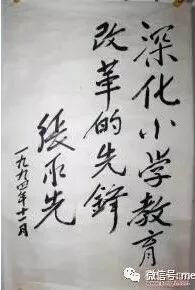 深化小学教育
改革的先锋
张承先
一九九四年十一月
微信号: me